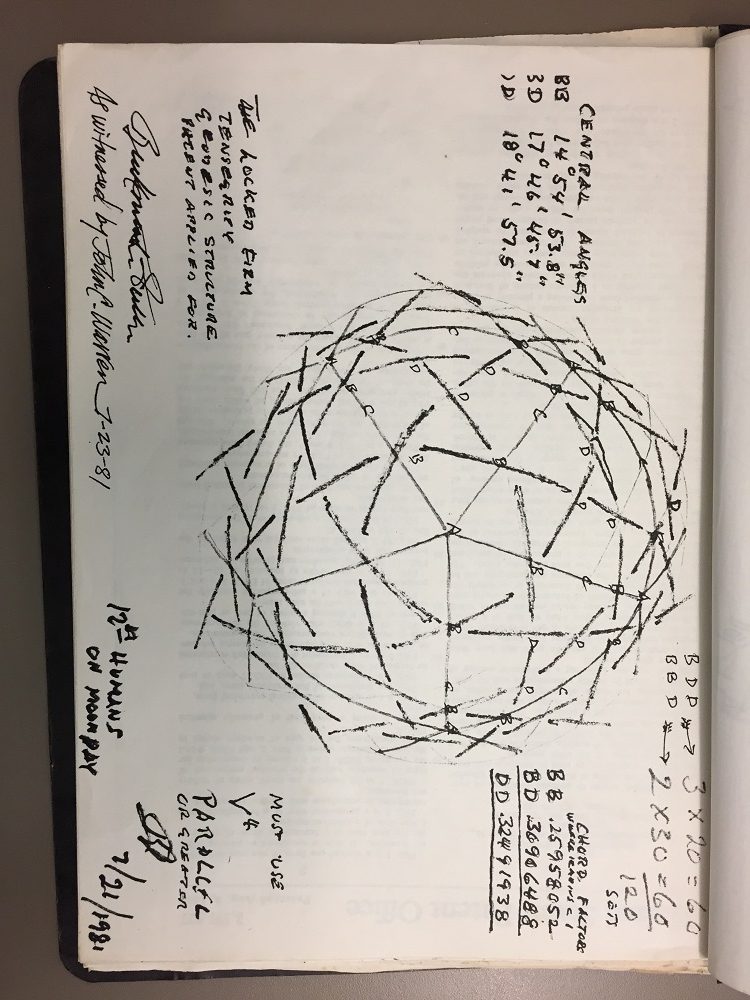 BDD → 3 x 20 = 60
BBD → 2 x 30 = 60
120
SETS
CENTRAL ANGLES
BB 14° 54' 53.8"
BD 17° 46' 45.7"
DD 18° 41' 57.5"
CHORD FACTORS
WHERE RADIUS = 1
BB .25958052
BD .30906488
DD .32491938
THE LOCKED FIRM
TENSEGRITY
GEODESIC STRUCTURE
PATENT APPLIED FOR.
MUST USE
V4
PARALLEL
OR GREATER
As witnessed by John C. Warren 7-23-81
12th HUMANS
ON MOON DAY
7/21/1981